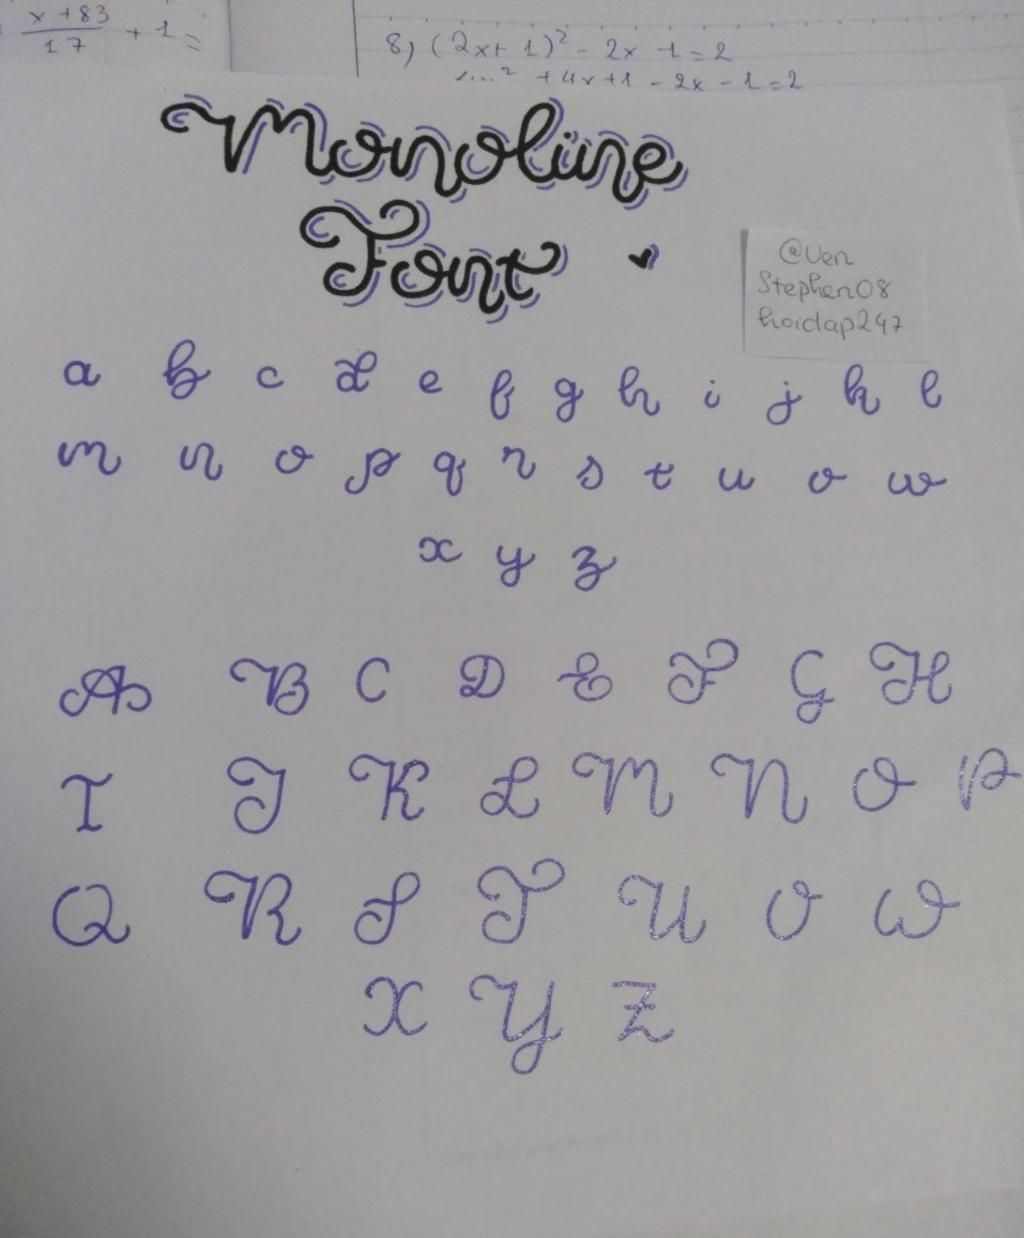 x + 83
17 + 1 =
8) (2x+ 1)² - 2x - 1 = 2
² + 4x + 1 - 2x - 1 = 2
Monoline
Font
@Ven
Stephen08
hoidap247
a b c d e f g h i j k l
m n o p q r s t u v w
x y z
A B C D E F G H
I J K L M N O P
Q R S T U V W
X Y Z